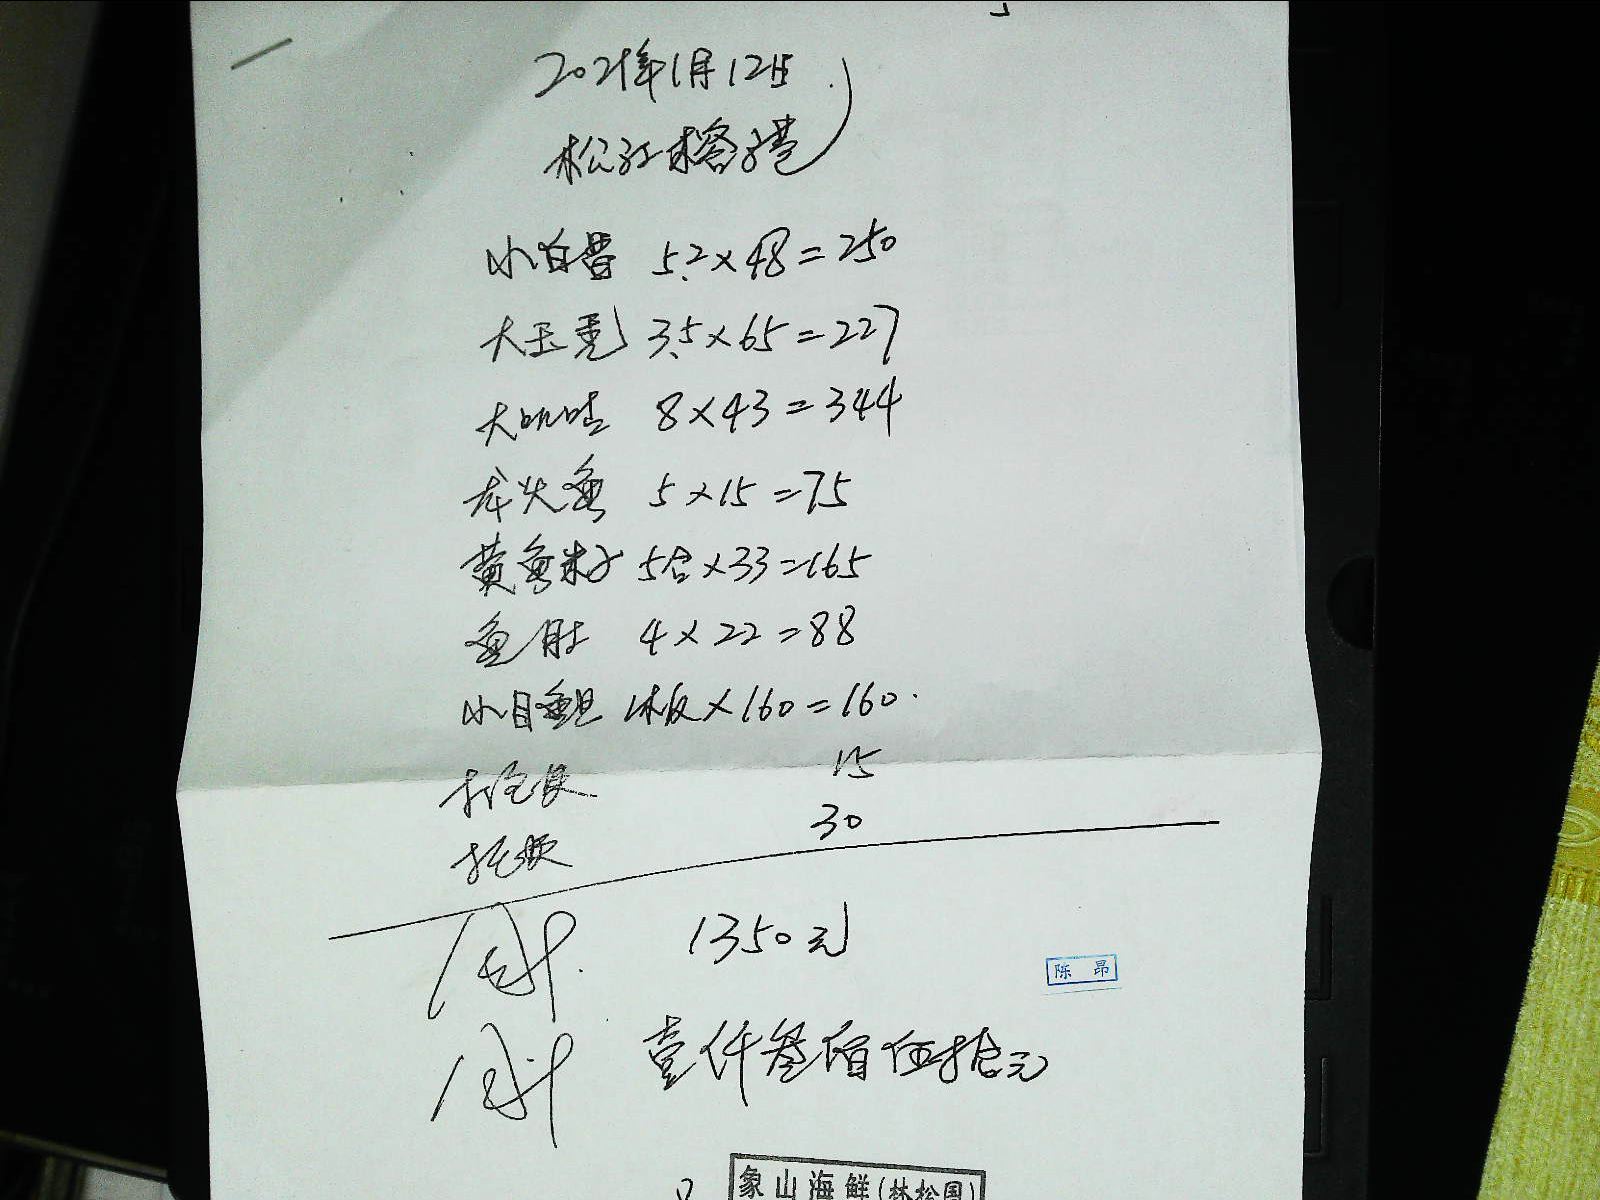 2021年1月12日
松江榕港
小白鲳 5.2×48=250
大玉秃 3.5×65=227
大 8×43=344
龙头鱼 5×15=75
黄鱼籽 5合×33=165
鱼肚 4×22=88
小目鱼 1板×160=160
15
30
1350元
陈昂
壹仟叁佰伍拾元
象山海鲜(林松国)